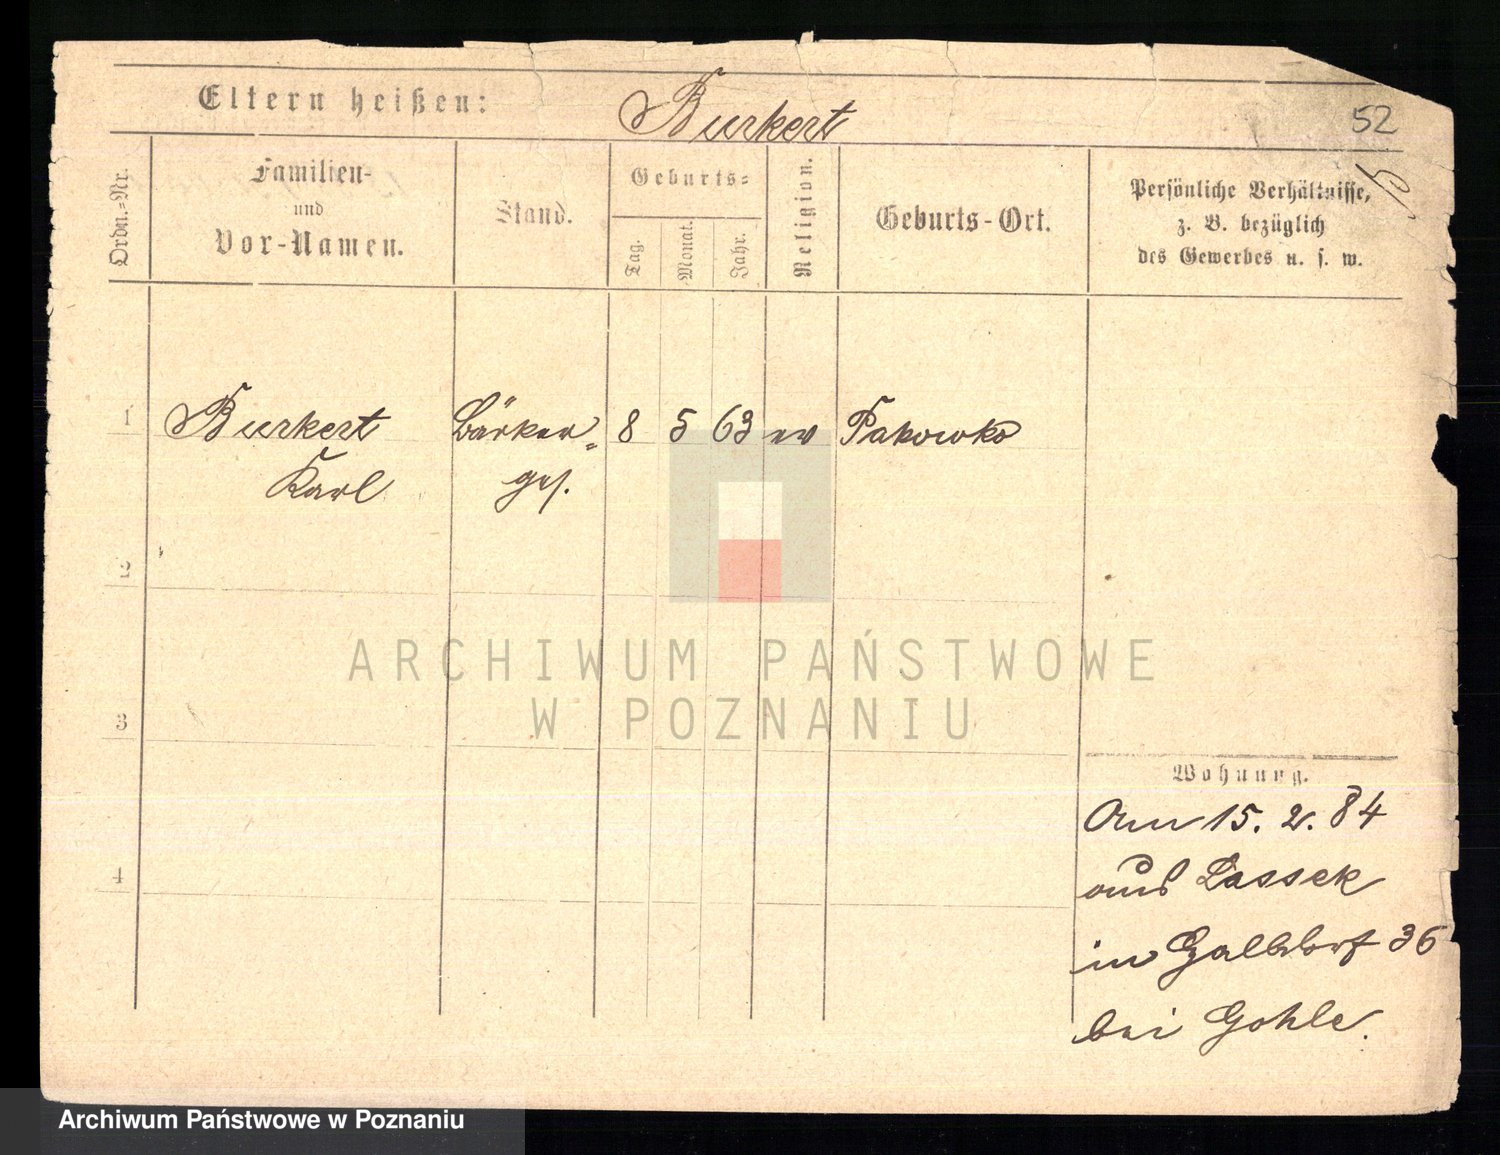 Eltern heißen: Burkert
52
Ordn.-Nr.
Familien-
und
Vor-Namen.
Stand.
Geburts-
Tag.
Monat.
Jahr.
Religion.
Geburts-Ort.
Persönliche Verhältnisse,
z. B. bezüglich
des Gewerbes u. s. w.
1 Burkert Bäcker- 8 5 63 ev Pakowko
Karl ges.
2
3
4
Wohnung.
Am 15. 2. 84
aus Lassek
in Gallsdorf 36
bei Gohle.
ARCHIWUM PAŃSTWOWE
W POZNANIU
Archiwum Państwowe w Poznaniu